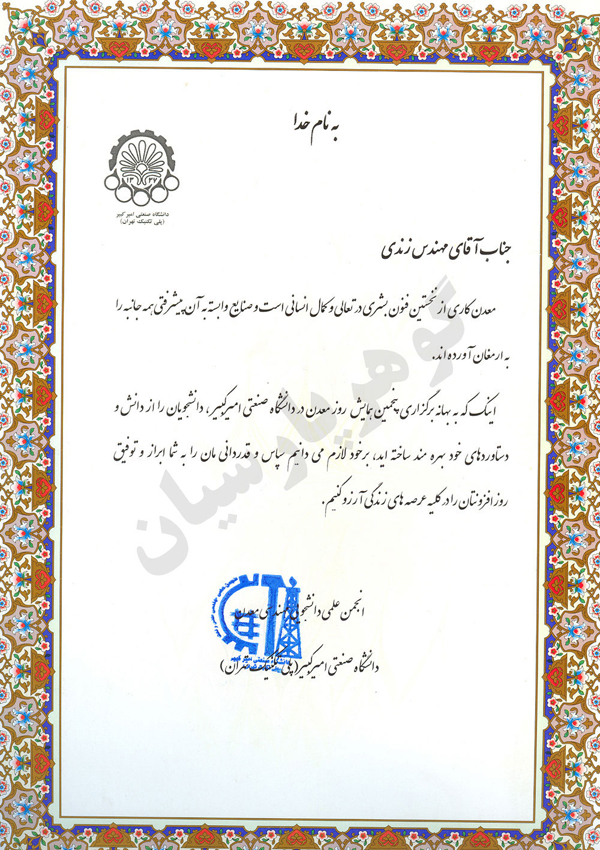 به نام خدا
دانشگاه صنعتی امیرکبیر
(پلی تکنیک تهران)
جناب آقای مهندس زندی
معدن کاری از نخستین فنون بشری در تعالی و کمال انسانی است و صنایع وابسته به آن پیشرفتی همه جانبه را
به ارمغان آورده اند.
اینک که به بهانه برگزاری پنجمین همایش روز معدن در دانشگاه صنعتی امیرکبیر، دانشجویان را از دانش و
دستاوردهای خود بهره مند ساخته اید، بر خود لازم می دانیم سپاس و قدردانی مان را به شما ابراز و توفیق
روز افزونتان را در کلیه عرصه های زندگی آرزو کنیم.
گوهر پارسیان
انجمن علمی دانشجویی مهندسی معدن
دانشگاه صنعتی امیرکبیر(پلی تکنیک تهران)